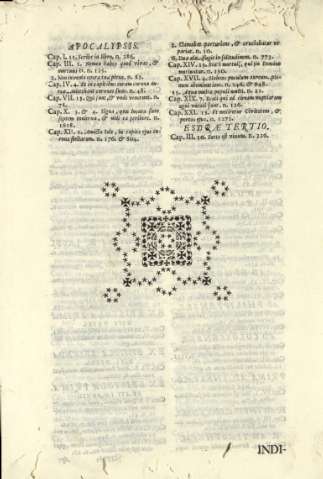 APOCALYPSIS.
Cap. I. 19. Scribe in libro, n. 586.
Cap. III. 1. Nomen habes quod vivas, &
mortuus es. n. 125.
2. Non invenio opera tua plena. n. 63.
Cap. IV. 4. Et in capitibus eorum corona au-
reæ, mittebant coronas suas. n. 48.
Cap. VII. 13. Qui sunt, & unde venerunt. n.
74.
Cap. X. 3. & 4. Signa, quæ locuta sunt
septem tonitrua, & noli ea scribere. n.
1028.
Cap. XII. 1. Amicta Sole, in capite ejus co-
rona stellarum. n. 176. & 804.
2. Clamabat parturiens, & cruciabatur ut
pariat. n. 10.
6. Duæ alæ, fugit in solitudinem. n. 773.
Cap. XIV. 13. Beati mortui, qui in Domino
moriuntur. n. 150.
Cap. XVII. 4. Habens poculum aureum, ple-
num abominatione. n. 246. & 848.
15. Aqua multa populi multi. n. 21.
Cap. XIX. 7. Beati qui ad cœnam nuptiarum
agni vocati sunt. n. 126.
Cap. XXI. 15. Ut metiretur Civitatem, &
portas ejus. n. 1271.
ESDRÆ TERTIO,
Cap. III. 10. Fortis est vinum. n. 226.
INDI-